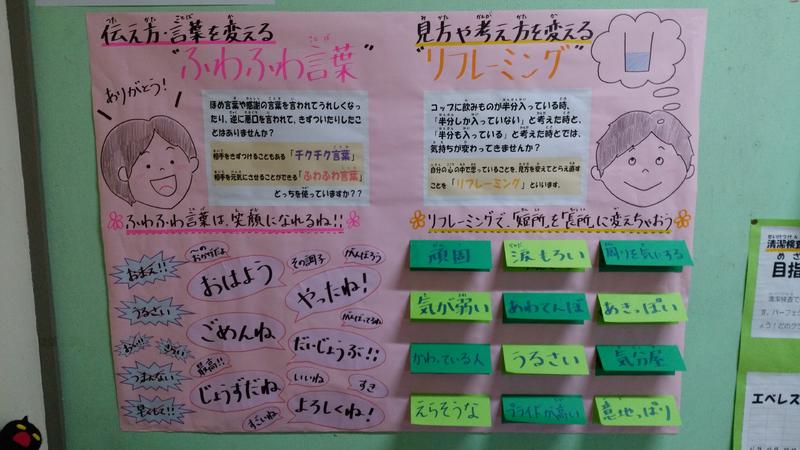 伝え方・言葉を変える
"ふわふわ言葉"
ありがとう!
ほめ言葉や感謝の言葉を言われてうれしくなっ
たり、逆に悪口を言われて、きずついたりしたこ
とはありませんか?
相手をきずつけることもある「チクチク言葉」
相手を元気にさせることができる「ふわふわ言葉」
どっちを使っていますか??
ふわふわ言葉は、笑顔になれるね!!
おまえ!!
うるさい
きらい
つまんない
早くして!!
〜の
おかげだよ
その調子
がんばろう
おはよう
やったね!
ごめんね
がんばってるね
だいじょうぶ!!
最高!!
いいね
すき
じょうずだね
すごいね
よろしくね!
見方や考え方を変える
"リフレーミング"
コップに飲みものが半分入っている時、
「半分しか入っていない」と考えた時と、
「半分も入っている」と考えた時とでは、
気持ちが変わってきませんか?
自分の心の中で思っていることを、見方を変えてとらえ直す
ことを「リフレーミング」といいます。
リフレーミングで、「短所」を「長所」に変えちゃおう
頑固
涙もろい
周りを気にする
気が弱い
あわてんぼ
あきっぽい
かわっている人
うるさい
気分屋
えらそうな
プライドが高い
意地っぱり
清潔検査
目指
エベレス